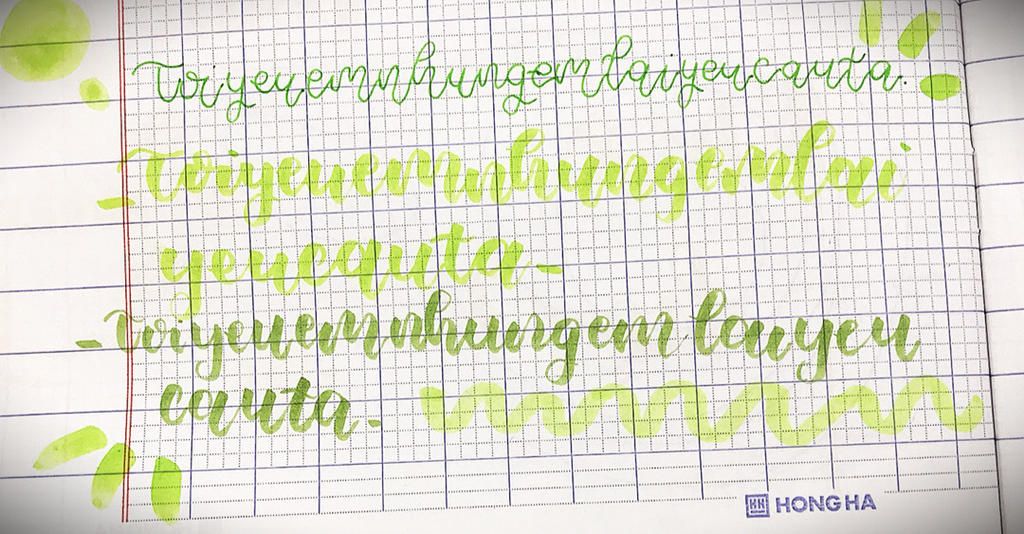 Toiyeuemnhungemlaiyeucauta.
Toiyeuemnhungemlai
yeucauta-
-Toiyeuemnhungem laiyeu
cauta-
HONG HA